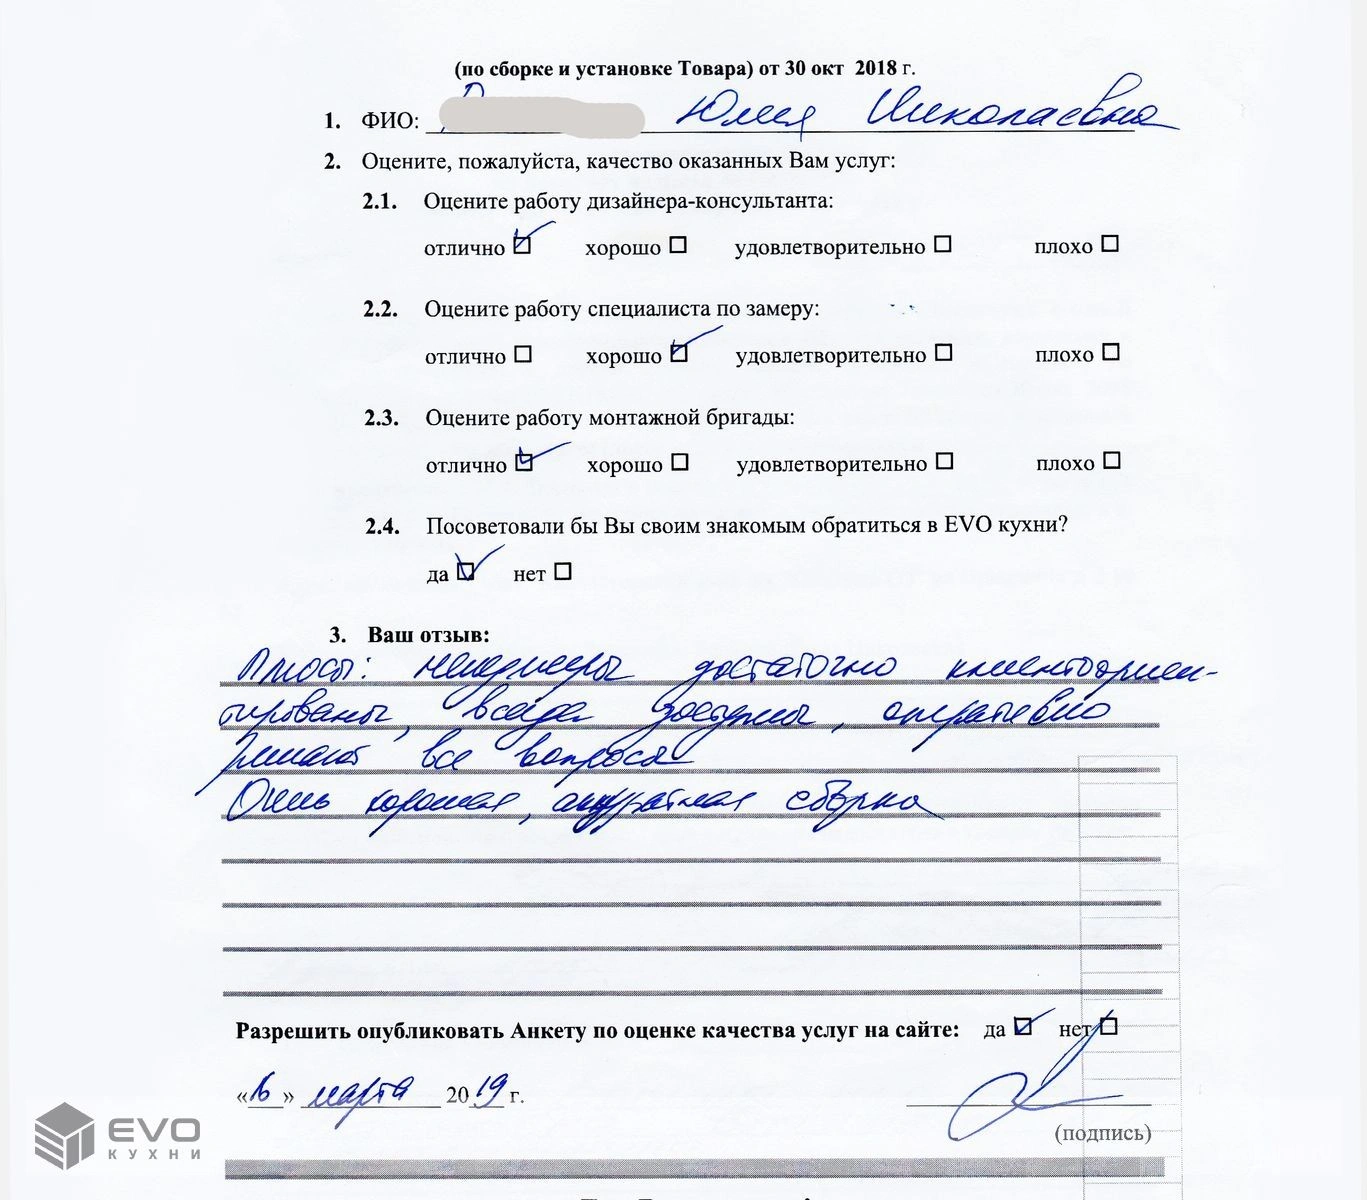 (по сборке и установке Товара) от 30 окт 2018 г.
1. ФИО: Юлия Николаевна
2. Оцените, пожалуйста, качество оказанных Вам услуг:
2.1. Оцените работу дизайнера-консультанта:
отлично ☑ хорошо ☐ удовлетворительно ☐ плохо ☐
2.2. Оцените работу специалиста по замеру:
отлично ☐ хорошо ☑ удовлетворительно ☐ плохо ☐
2.3. Оцените работу монтажной бригады:
отлично ☑ хорошо ☐ удовлетворительно ☐ плохо ☐
2.4. Посоветовали бы Вы своим знакомым обратиться в EVO кухни?
да ☑ нет ☐
3. Ваш отзыв:
Плюсы: менеджеры достаточно клиентоориен-
тированы, всегда доступны, оперативно
решают все вопросы
Очень хорошая, аккуратная сборка
Разрешить опубликовать Анкету по оценке качества услуг на сайте: да ☑ нет ☐
«16» марта 2019 г.
(подпись)
EVO
КУХНИ